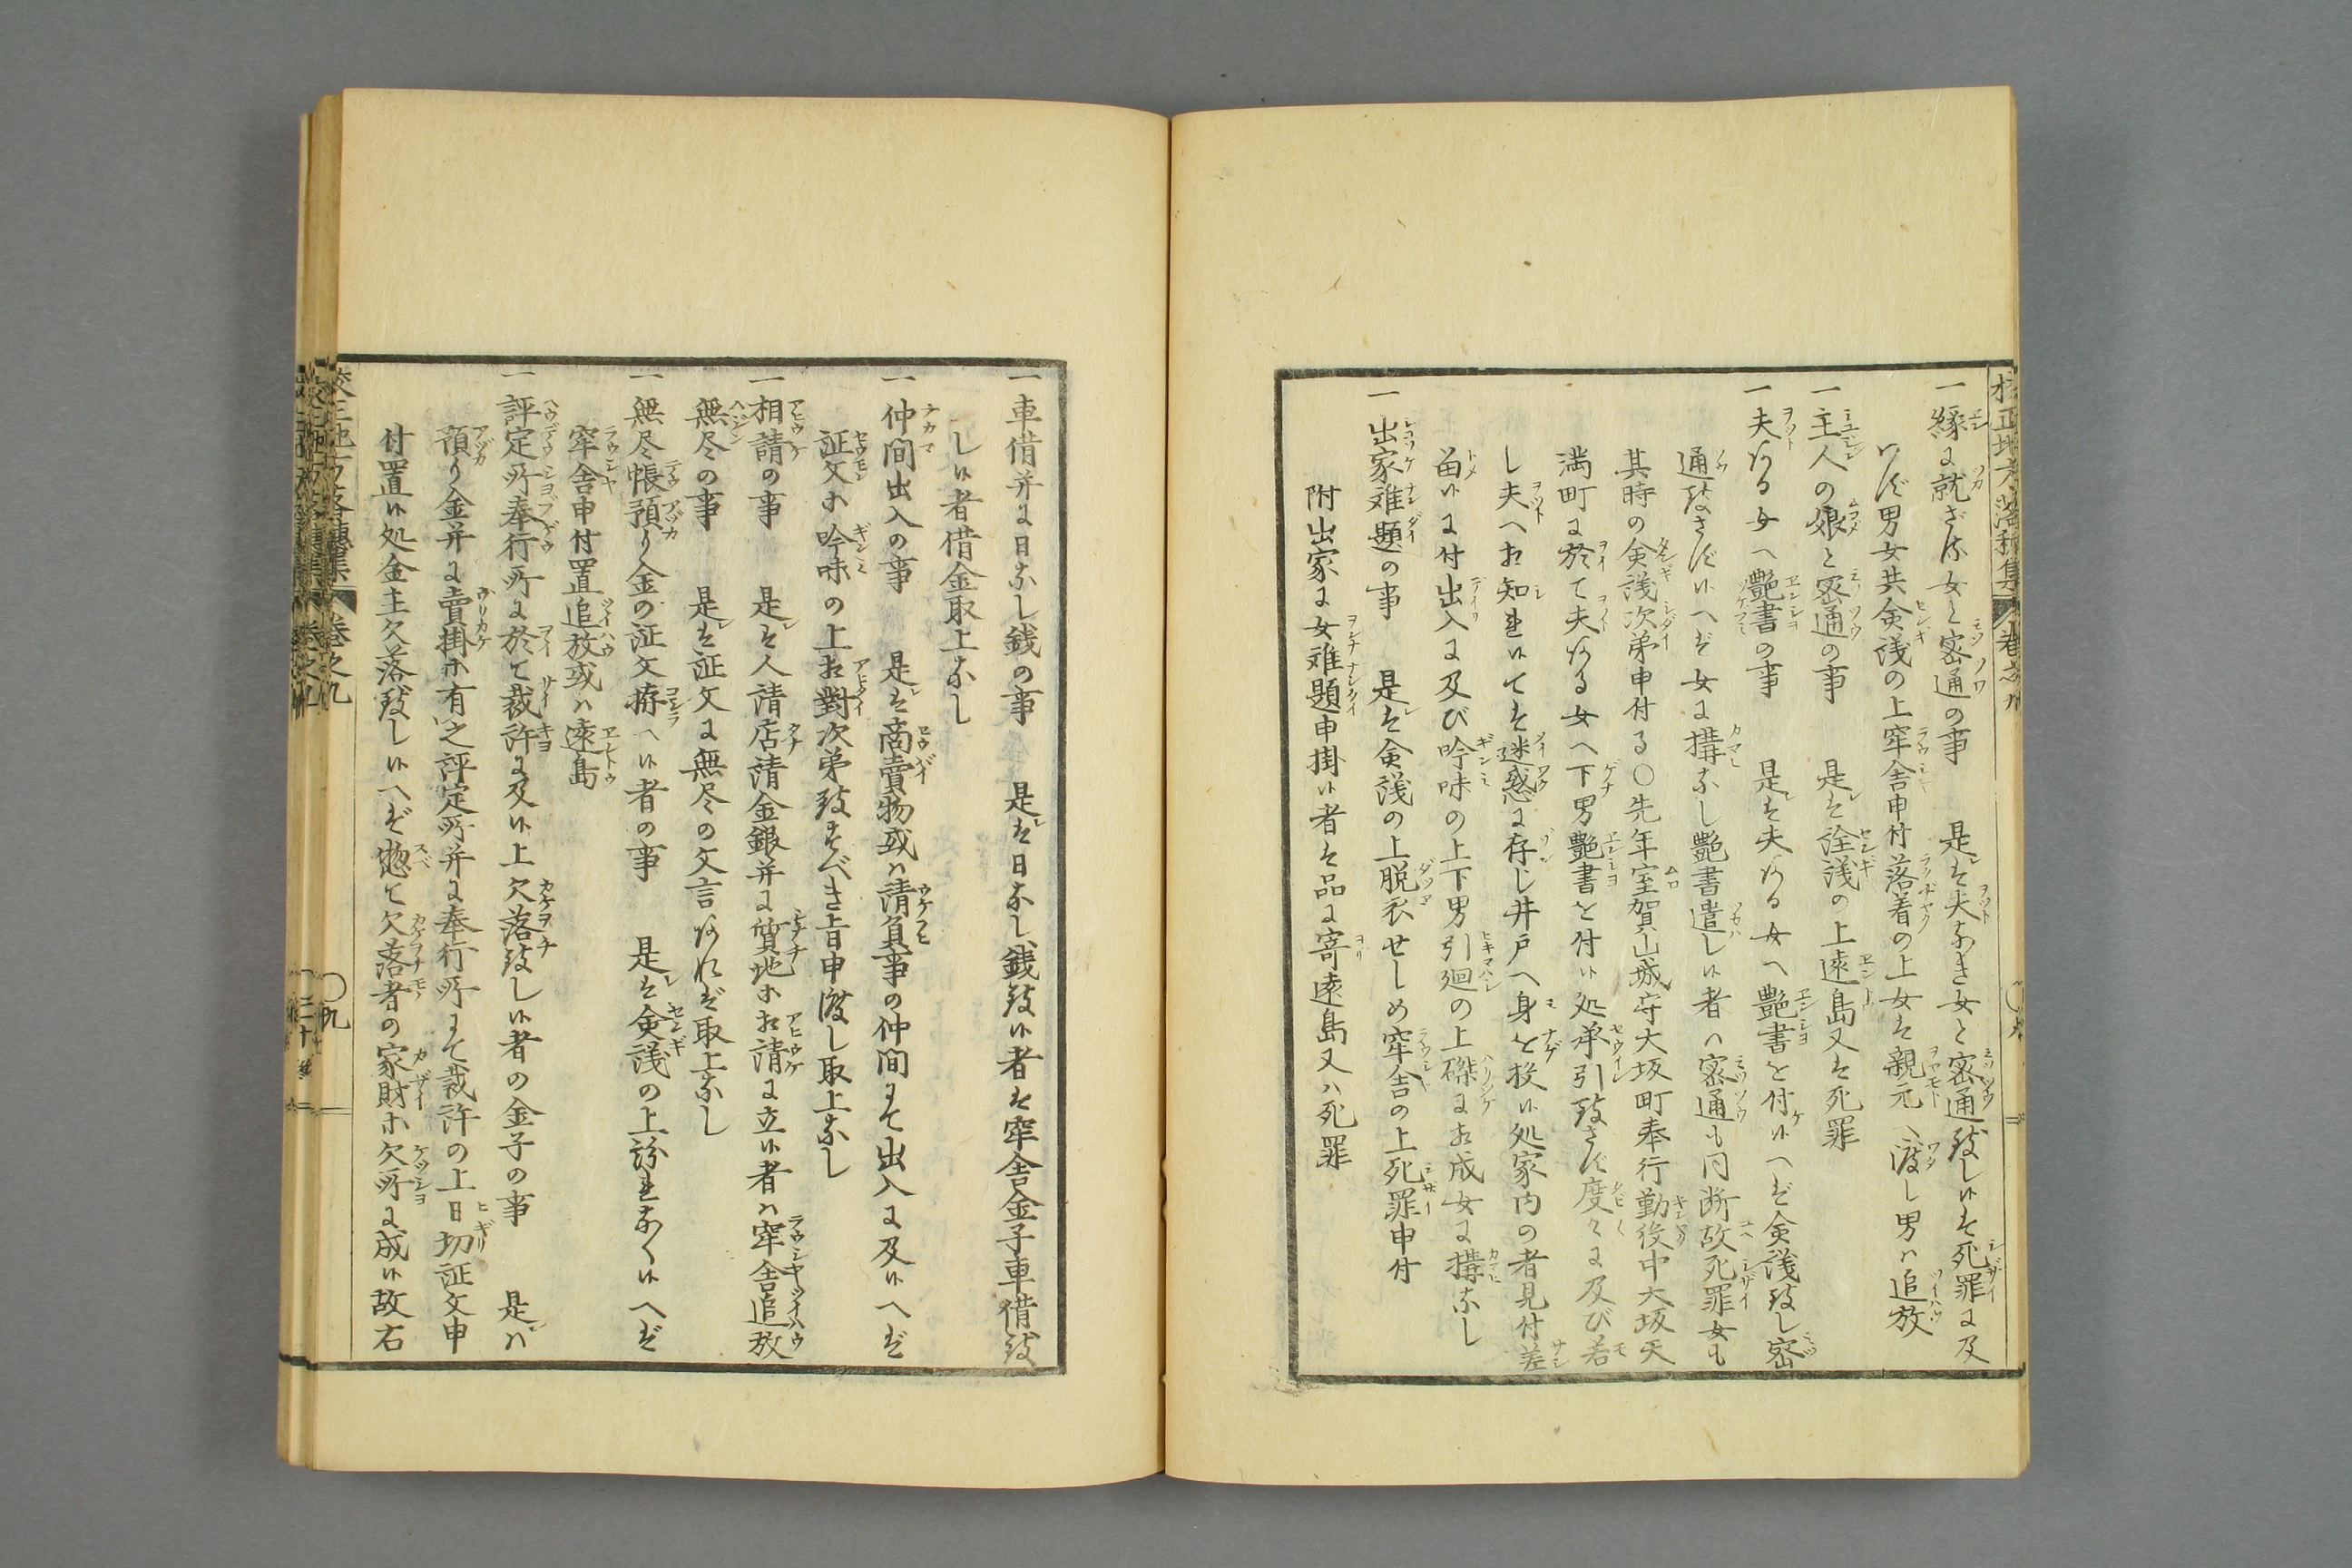 一縁に就ざる女と密通の事　是は夫なき女と密通致し候は死罪に及
候ず男女共僉議の上牢舎申付落着の上女は親元へ渡し男は追放
一主人の娘と密通の事　是は詮議の上遠島又は死罪
一夫ある女へ艶書の事　是は夫ある女へ艶書を付候へば僉議致し密
通致さず候へば女に構なし艶書遣し候者ハ密通も同断故死罪女も
其時の僉議次第申付る〇先年室賀山城守大坂町奉行勤役中大坂天
満町に於て夫ある女へ下男艶書を付候処承引致さず度々に及び若
し夫へ相知れ候ては迷惑に存じ井戸へ身を投候処家内の者見付差
留候に付出入に及び吟味の上下男引廻の上磔に相成女に構なし
一出家難題の事　是は僉議の上脱衣せしめ牢舎の上死罪申付
附出家に女難題申掛候者は品に寄遠島又ハ死罪
一車借并に日なし銭の事　是は日なし銭致候者は牢舎金子車借致
し候者借金取上なし
一仲間出入の事　是は商賣物或ハ請負事の仲間にて出入に及候へば
証文等吟味の上相對次第致すべき旨申渡し取上なし
一相請の事　是は人請店請金銀并に質地等相請に立候者ハ牢舎追放
無尽の事　是は証文に無尽の文言あれば取上なし
一無尽帳預り金の証文拵へ候者の事　是は僉議の上紛れなく候へば
牢舎申付置追放或ハ遠島
一評定所奉行所に於て裁許に及候上欠落致し候者の金子の事　是ハ
預り金并に賣掛等有之評定所并に奉行所にて裁許の上日切証文申
付置候処金主欠落致し候へば惣て欠落者の家財等欠所に成候故右
巻之九